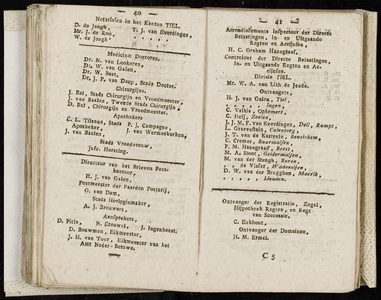 — 40 —
Notarissen in het Kanton TIEL.
D. de Jongh, T. J. van Everdingen,
Mr. J. de Roo,
W. de Jongh,
Medicine Doctoren.
Dr. N. van Lonkeren,
Dr. W. van Galen,
Dr. W. Best,
Dr. J. F. van Dorp, Stads Doctor.
Chirurgijns.
J. Bal, Stads Chirurgijn en Vroedmeester,
van Baalen, Tweede Stads Chirurgijn,
D. Bal, Chirurgijn en Vroedmeester.
Apothekers
C. L. Tilenus, Stads P. J. Campagne,
Apotheker, J. van Wermeskerken,
J. van Baalen,
Stads Vroedvrouw,
Jufv. Hensing.
Directeur van het Brieven Post-
kantoor,
H. J. van Galen,
Postmeester der Paarden Posterij,
G. van Dam,
Stads Horlogiemaker,
A. J. Brouwers,
Aansprekers,
D. Pitlo, N. Crouwel, J. Ingenhoest,
D. Bouwman, Eikmeester,
J. H. van Toor, Eikmeester van het
Amt Neder-Betuwe.
— 41 —
Arrondissements Inspecteur der Directe
Belastingen, In- en Uitgaande
Regten en Accijnsen.
H. C. Graham Hanegraaf,
Controleur der Directe Belastingen,
In- en Uitgaande Regten en Ac-
cijnsen.
Divisie TIEL.
Mr. W. A. van Lith de Jeude.
Ontvangers.
H. J. van Galen, Tiel,
J. Ingen,
C. Valkis, Ophemert,
C. Heij, Zoelen,
J. J. M. F. van Everdingen, Deil, Rumpt,
L. Greevelhuis, Culenborg,
J. T. van de Kasteele, Beusichem,
C. Cremer, Buurmalsen,
F. M. Hanegraaf, Beest,
M. A. Sloot, Geldermalsen,
M. van der Stengh, Buren,
de Visser, Wadenoijen,
D. W. van der Brugghen, Maurik,
Lienden.
Ontvanger der Registratie, Zegel,
Hijpotheek Regten, en Regt
van Successie,
C. Eekhout,
Ontvanger der Domeinen,
H. M. Ermel.
C 5